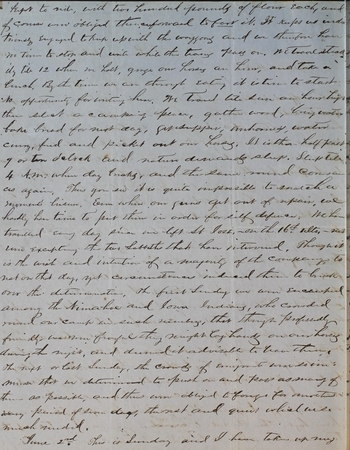 kept to ride, with two hundred pounds of flour each, and
of course was obliged thenceforward to foot it. It keeps us indus-
triously engaged to keep up with the waggons and we therefore have
no time to stop and write while the train pass on. We travel steadi-
ly till 12 when we halt, graze our horses an hour, and take a
lunch. By the time we are through eating it is time to start.
No opportunity for writing here. We travel till sun an hour high
then select a camping place, gather wood, bring water
bake bread for next day, get supper, unharness, water
curry, feed and picket out our horses, It is then half past
9 or ten o'clock and nature demands sleep. Sleep till
4 A.M. when day breaks, and the same round comes
us again. Thus you see it is quite impossible to snatch a
moment's leisure. Even when our guns get out of repair, we
hardly have time to put them in order for self defence. We have
travelled every day since we left St Joseph on the 16th ulto, not
even excepting the two Sabbaths that have intervened. Though it
is the wish and intention of a majority of the company to
rest on that day, yet circumstances induced them to break
over the determination. The first Sunday we were encamped
among the Kimahas and Iowa Indians, who crowded
round our camp in such numbers, that though professedly
friendly we were fearful they might lay hands on our horses
during the night, and deemed it advisable to leave them.
The next or last Sunday, the crowds of emigrants were so im-
mense that we determined to push on and pass as many of
them as possible, and thus were obliged to forego for another
period of seven days, the rest and quiet which we so
much needed.
June 2nd This is Sunday and I have taken up my